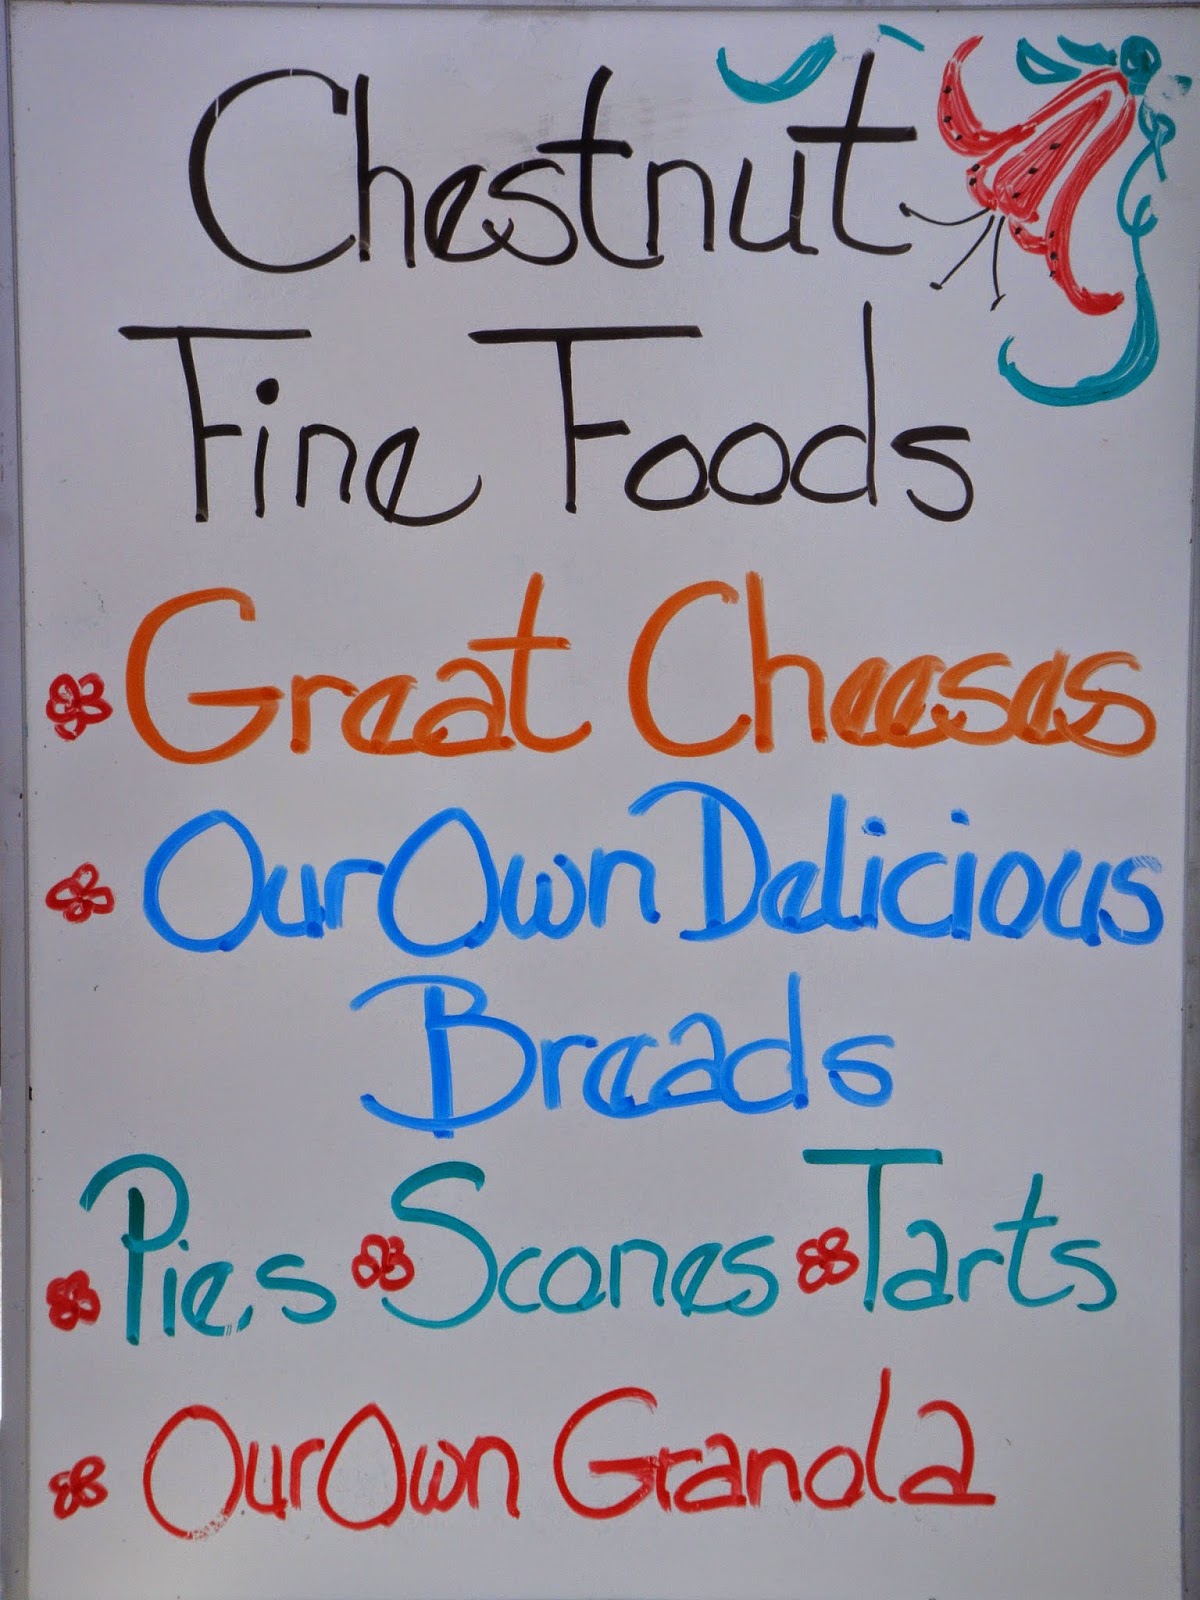 Chestnut
Fine Foods
Great Cheeses
Our Own Delicious
Breads
Pies Scones Tarts
Our Own Granola